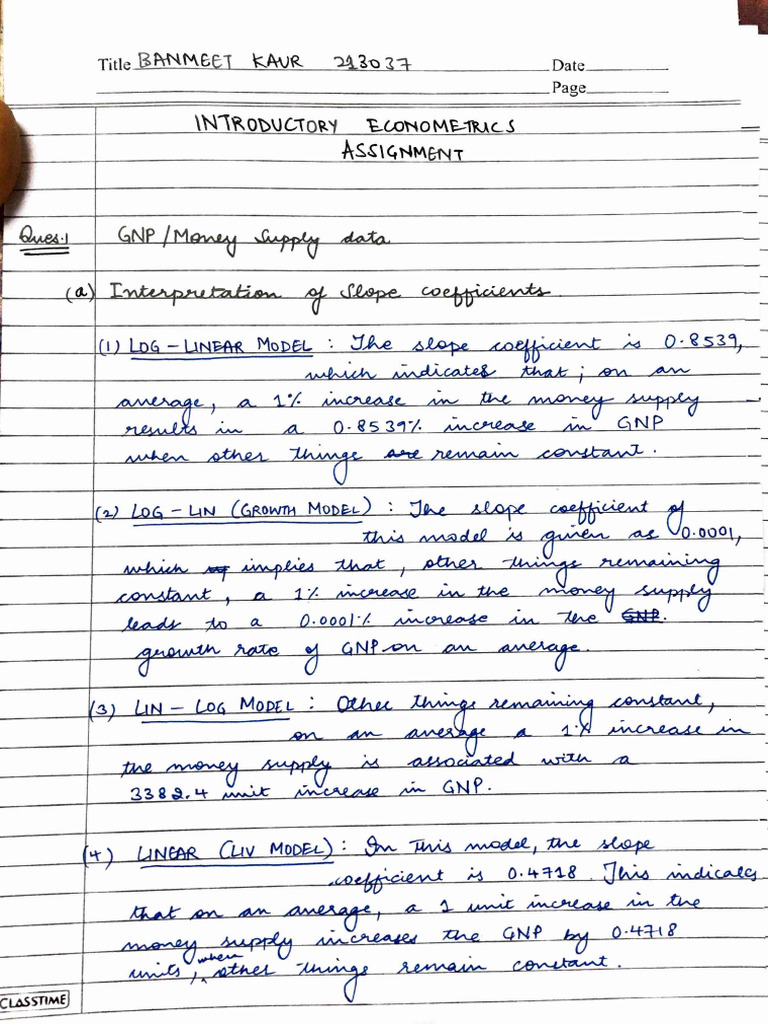 Title BANMEET KAUR 213037 Date
Page
INTRODUCTORY ECONOMETRICS
ASSIGNMENT
Ques.1 GNP/Money Supply data
(a) Interpretation of Slope coefficients.
(1) LOG-LINEAR MODEL : The slope coefficient is 0.8539,
which indicates that; on an
average, a 1% increase in the money supply
results in a 0.8539% increase in GNP
when other things are remain constant.
(2) LOG-LIN (GROWTH MODEL) : The slope coefficient of
this model is given as 0.0001,
which implies that, other things remaining
constant, a 1% increase in the money supply
leads to a 0.0001% increase in the GNP.
growth rate of GNP on an average.
(3) LIN-LOG MODEL : Other things remaining constant,
on an average a 1% increase in
the money supply is associated with a
3382.4 unit increase in GNP.
(4) LINEAR (LIV MODEL) : In this model, the slope
coefficient is 0.4718. This indicates
that on an average, a 1 unit increase in the
money supply increases the GNP by 0.4718
units, when other things remain constant.
CLASSTIME